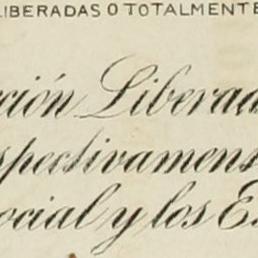 LIBERADAS O TOTALMENTE
ción Liberad
spectivamen
ocial y los E